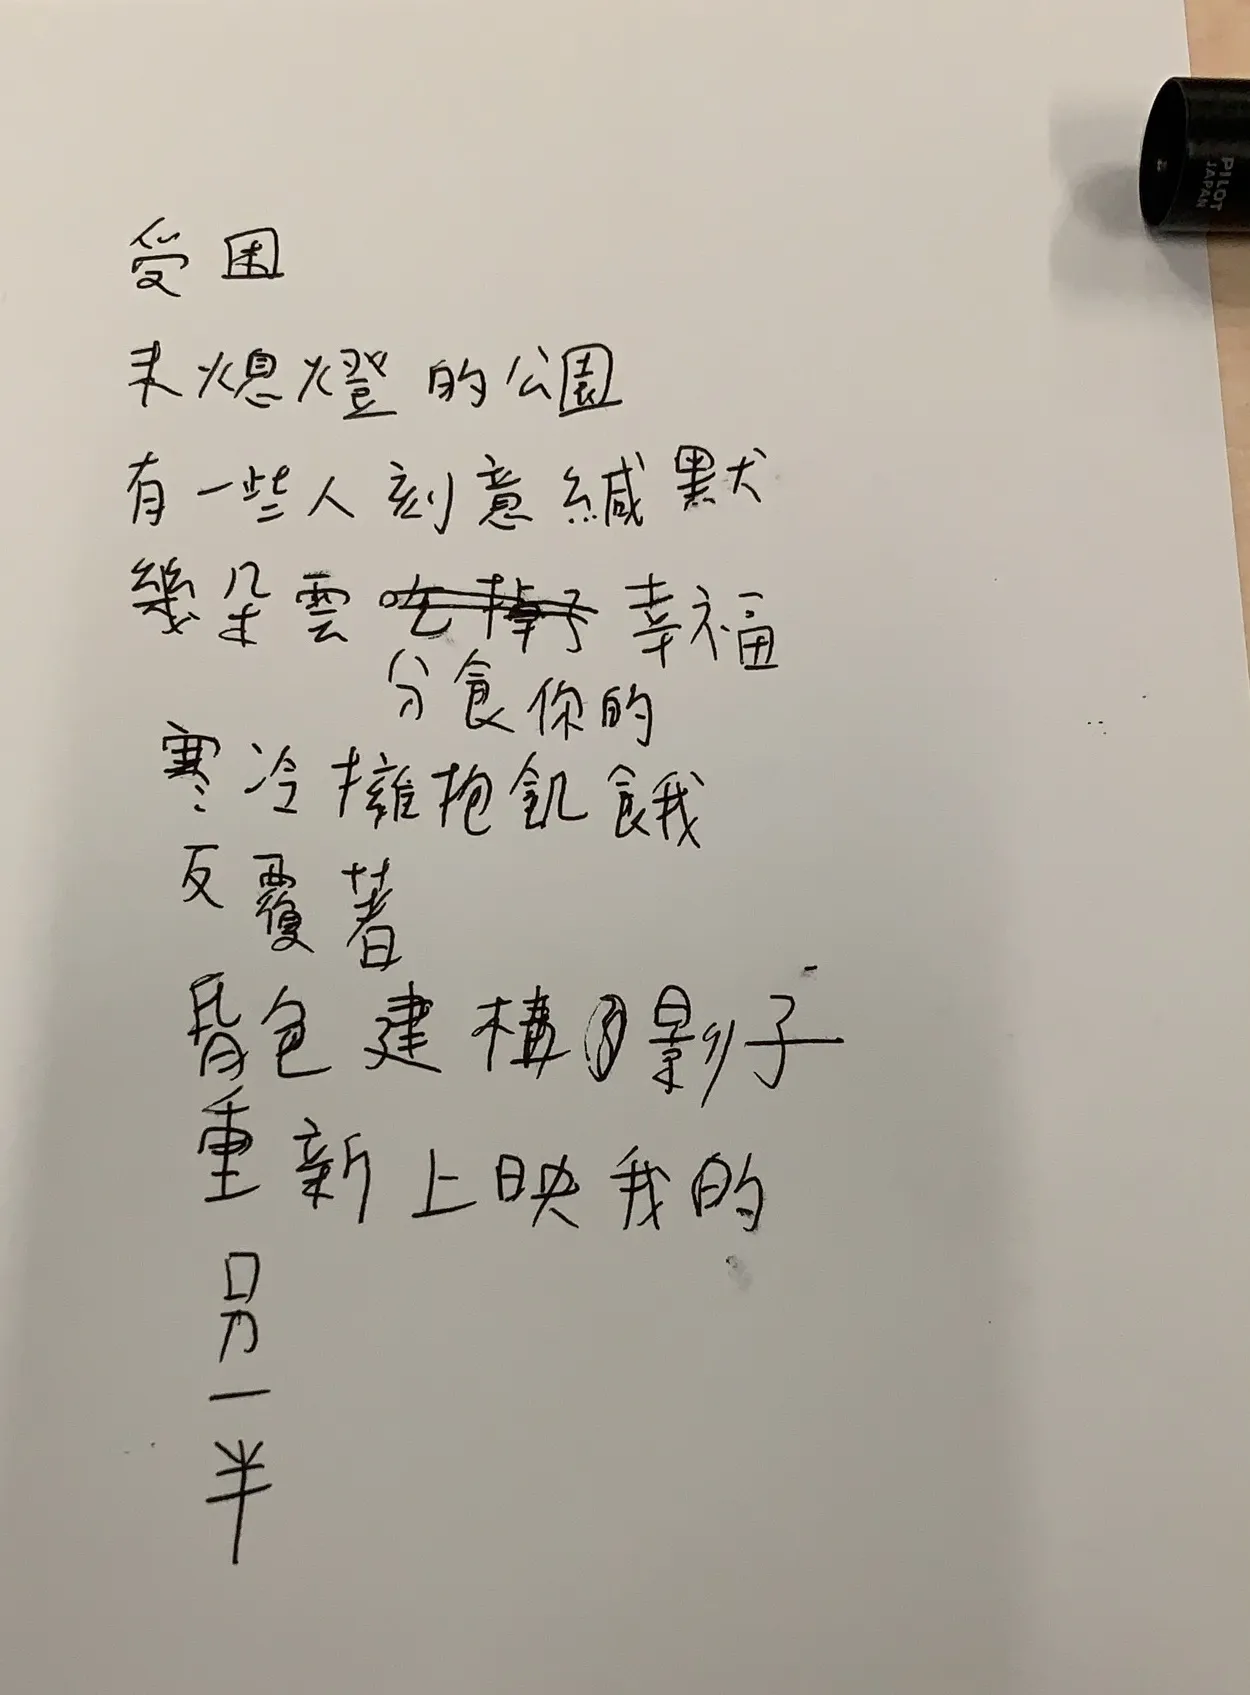 受困
未熄燈的公園
有一些人刻意緘默
幾朵雲吃掉了幸福
分食你的
寒冷擁抱飢餓
反覆著
背包建構影子
重新上映我的
另
一
半
PILOT
JAPAN